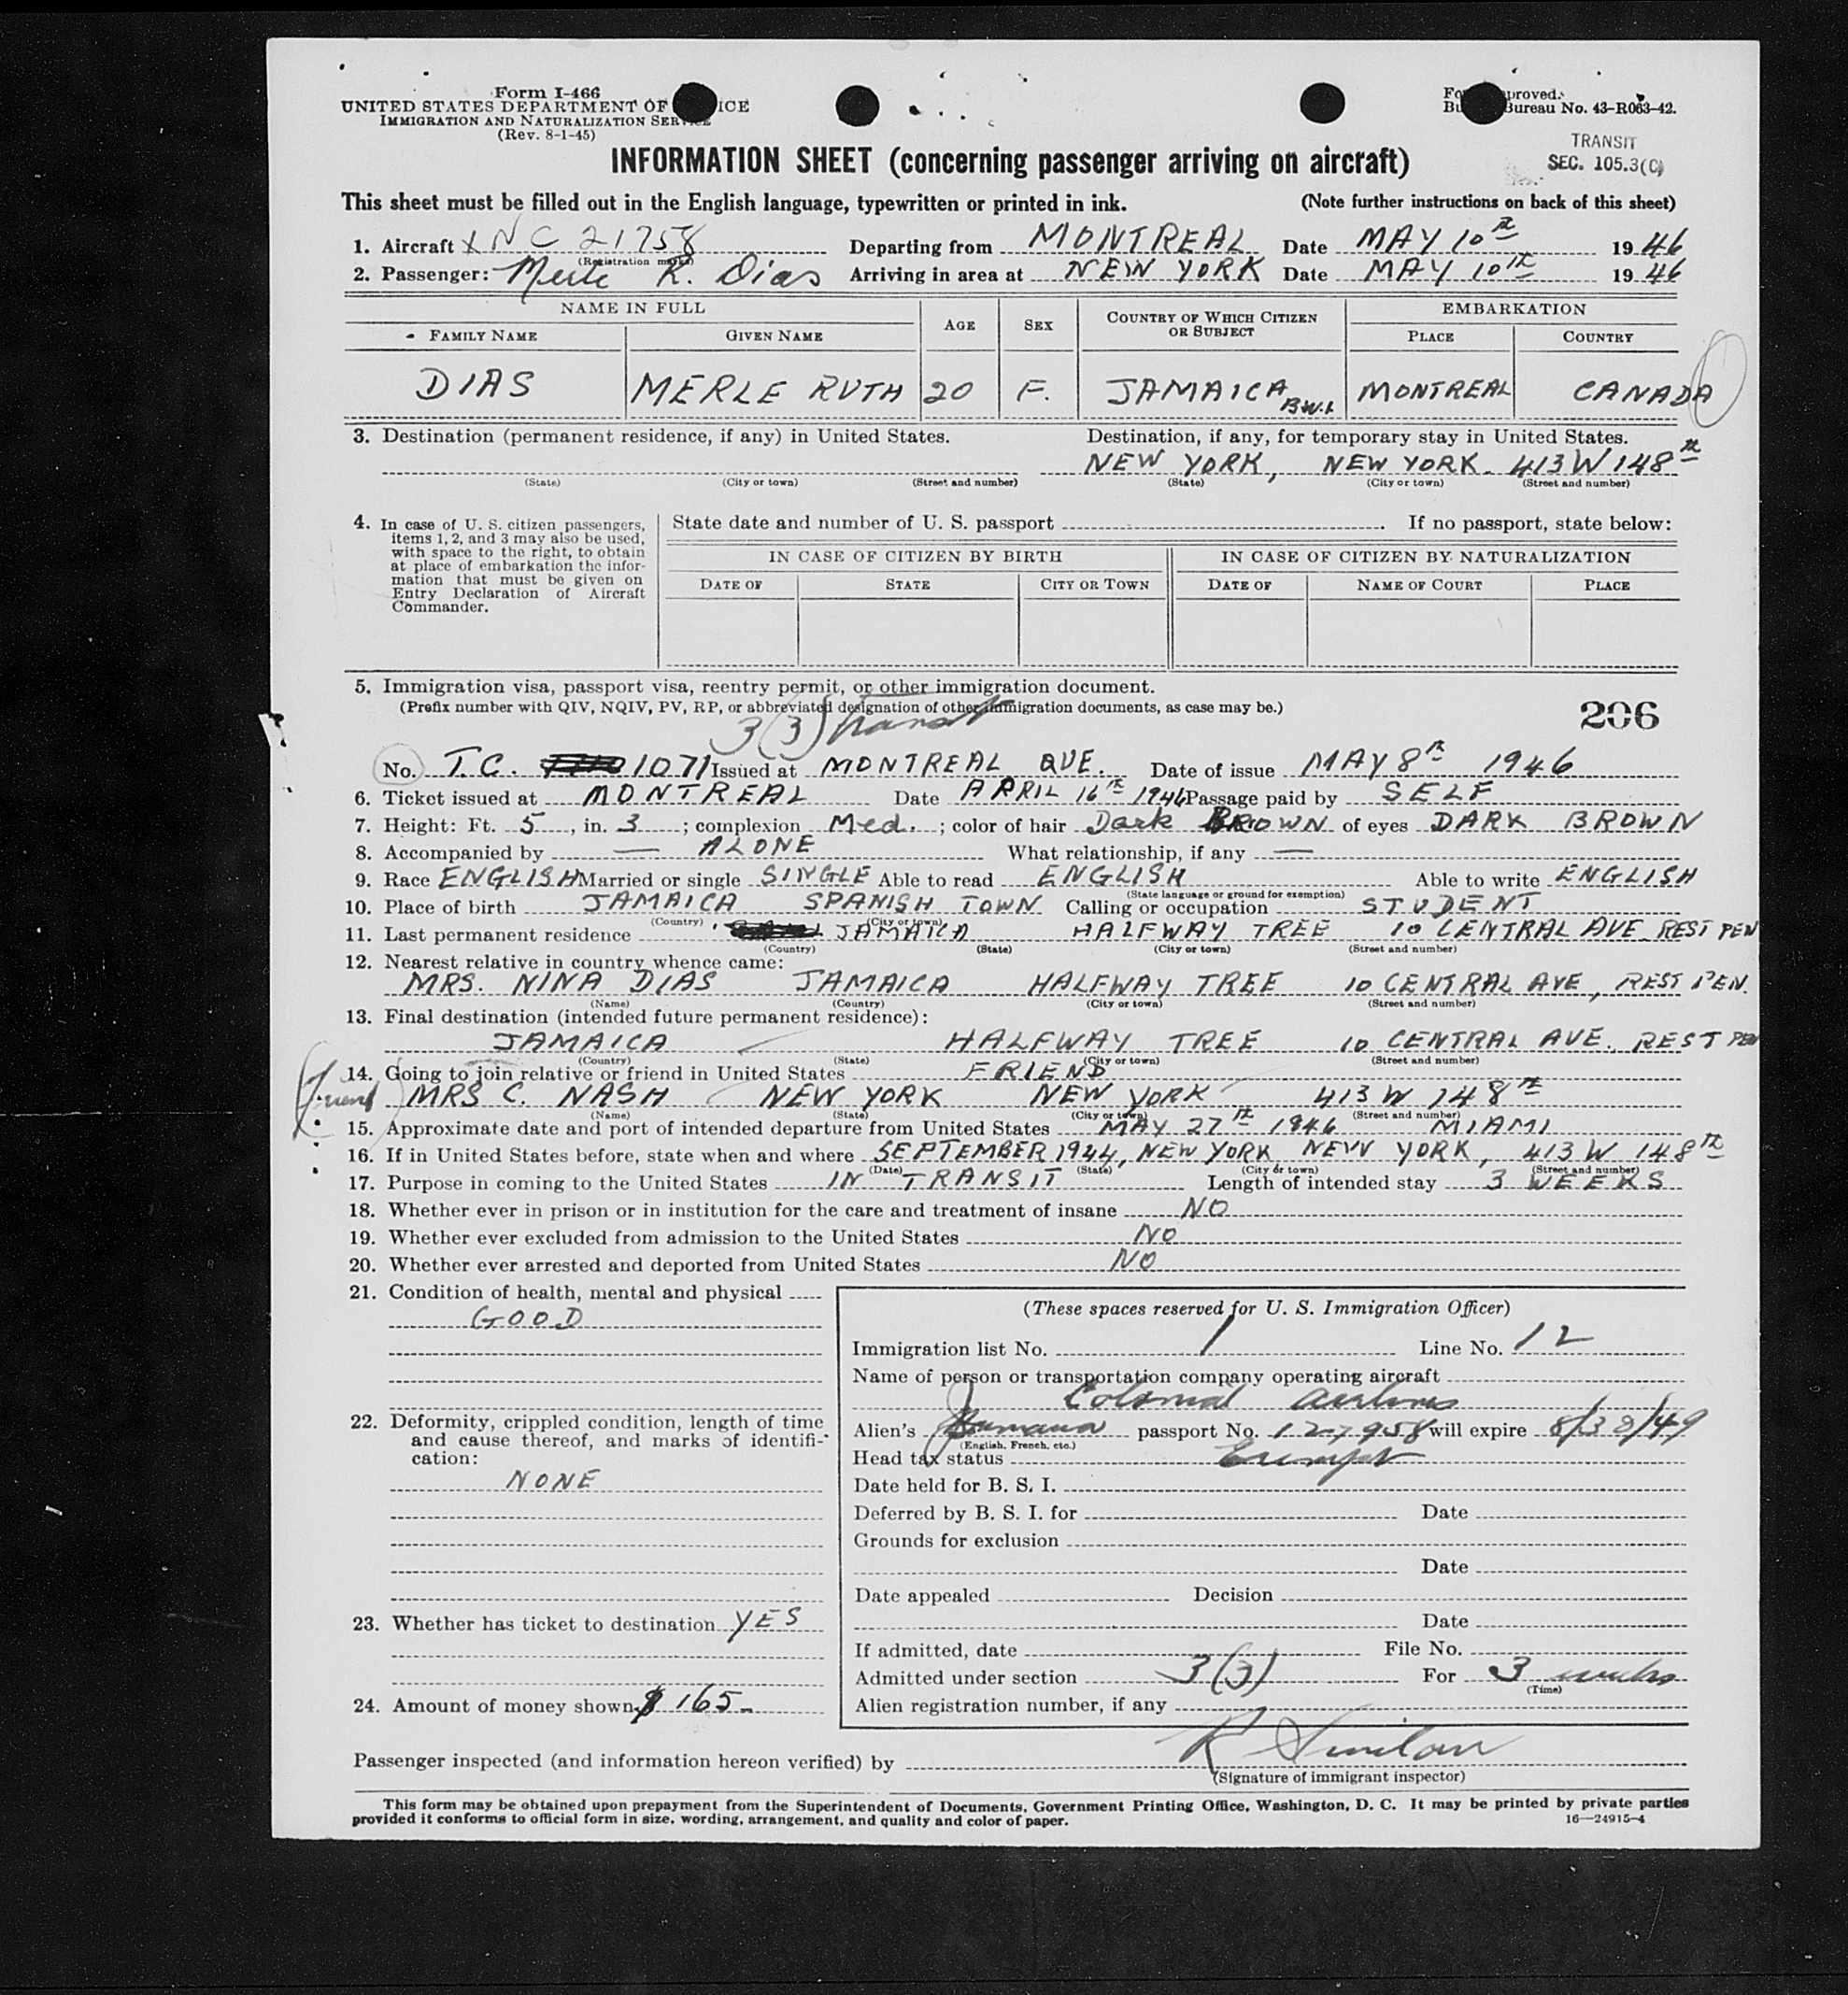 Form I-466
UNITED STATES DEPARTMENT OF ICE
IMMIGRATION AND NATURALIZATION SERVICE
(Rev. 8-1-45)
Form approved.
Bureau No. 43-R063-42.
TRANSIT
SEC. 105.3(C)
INFORMATION SHEET (concerning passenger arriving on aircraft)
This sheet must be filled out in the English language, typewritten or printed in ink. (Note further instructions on back of this sheet)
1. Aircraft NC 21758 Departing from MONTREAL Date MAY 10th 1946
(Registration marks)
2. Passenger: Merle R. Dias Arriving in area at NEW YORK Date MAY 10th 1946
NAME IN FULL AGE SEX COUNTRY OF WHICH CITIZEN OR SUBJECT EMBARKATION
FAMILY NAME GIVEN NAME PLACE COUNTRY
DIAS MERLE RUTH 20 F. JAMAICA B.W.I. MONTREAL CANADA
3. Destination (permanent residence, if any) in United States. Destination, if any, for temporary stay in United States.
NEW YORK, NEW YORK. 413 W 148th
(State) (City or town) (Street and number) (State) (City or town) (Street and number)
4. In case of U. S. citizen passengers, items 1, 2, and 3 may also be used, with space to the right, to obtain at place of embarkation the information that must be given on Entry Declaration of Aircraft Commander.
State date and number of U. S. passport . If no passport, state below:
IN CASE OF CITIZEN BY BIRTH IN CASE OF CITIZEN BY NATURALIZATION
DATE OF STATE CITY OR TOWN DATE OF NAME OF COURT PLACE
5. Immigration visa, passport visa, reentry permit, or other immigration document.
(Prefix number with QIV, NQIV, PV, RP, or abbreviated designation of other immigration documents, as case may be.)
3(3) transit
206
No. T.C. 1071 Issued at MONTREAL QUE. Date of issue MAY 8th 1946
6. Ticket issued at MONTREAL Date APRIL 16th 1946 Passage paid by SELF
7. Height: Ft. 5, in. 3; complexion Med.; color of hair Dark BROWN of eyes DARK BROWN
8. Accompanied by — ALONE What relationship, if any —
9. Race ENGLISH Married or single SINGLE Able to read ENGLISH Able to write ENGLISH
(State language or ground for exemption)
10. Place of birth JAMAICA SPANISH TOWN Calling or occupation STUDENT
(Country) (City or town)
11. Last permanent residence JAMAICA HALFWAY TREE 10 CENTRAL AVE. REST PEN
(Country) (State) (City or town) (Street and number)
12. Nearest relative in country whence came:
MRS. NINA DIAS JAMAICA HALFWAY TREE 10 CENTRAL AVE, REST PEN.
(Name) (Country) (City or town) (Street and number)
13. Final destination (intended future permanent residence):
JAMAICA HALFWAY TREE 10 CENTRAL AVE. REST PEN
(Country) (State) (City or town) (Street and number)
14. Going to join relative or friend in United States FRIEND
friend
MRS C. NASH NEW YORK NEW YORK 413 W 148th
(Name) (State) (City or town) (Street and number)
15. Approximate date and port of intended departure from United States MAY 27th 1946 MIAMI
16. If in United States before, state when and where SEPTEMBER 1944, NEW YORK NEW YORK, 413 W 148th
(Date) (State) (City or town) (Street and number)
17. Purpose in coming to the United States IN TRANSIT Length of intended stay 3 WEEKS
18. Whether ever in prison or in institution for the care and treatment of insane NO
19. Whether ever excluded from admission to the United States NO
20. Whether ever arrested and deported from United States NO
21. Condition of health, mental and physical
GOOD
22. Deformity, crippled condition, length of time
and cause thereof, and marks of identification:
NONE
23. Whether has ticket to destination YES
24. Amount of money shown $165-
(These spaces reserved for U. S. Immigration Officer)
Immigration list No. 1 Line No. 12
Name of person or transportation company operating aircraft
Colonial Airlines
Alien's passport No. 127958 will expire 8/30/49
(English, French, etc.)
Head tax status Exempt
Date held for B. S. I.
Deferred by B. S. I. for Date
Grounds for exclusion
Date
Date appealed Decision
Date
If admitted, date File No.
Admitted under section 3(3) For 3 weeks
(Time)
Alien registration number, if any
Passenger inspected (and information hereon verified) by
(Signature of immigrant inspector)
This form may be obtained upon prepayment from the Superintendent of Documents, Government Printing Office, Washington, D. C. It may be printed by private parties
provided it conforms to official form in size, wording, arrangement, and quality and color of paper. 16—24915-4